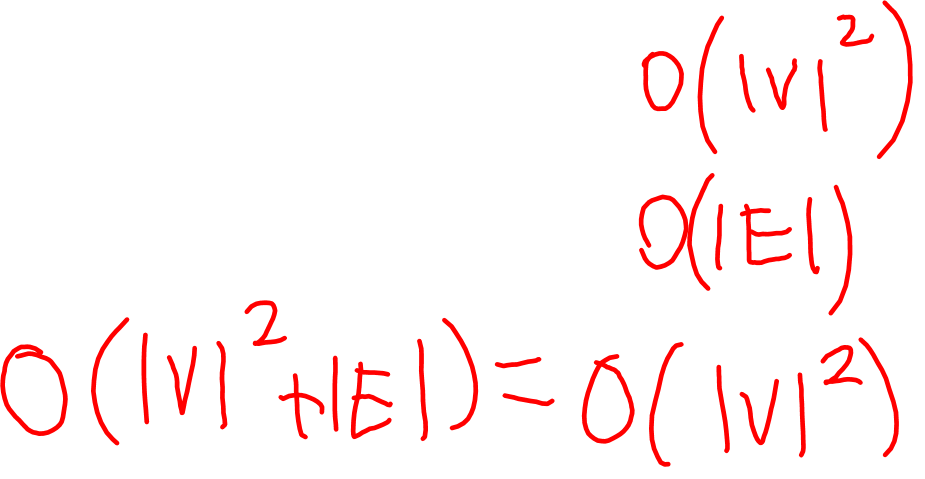 O(|V|²)
O(|E|)
O(|V|²+|E|)=O(|V|²)